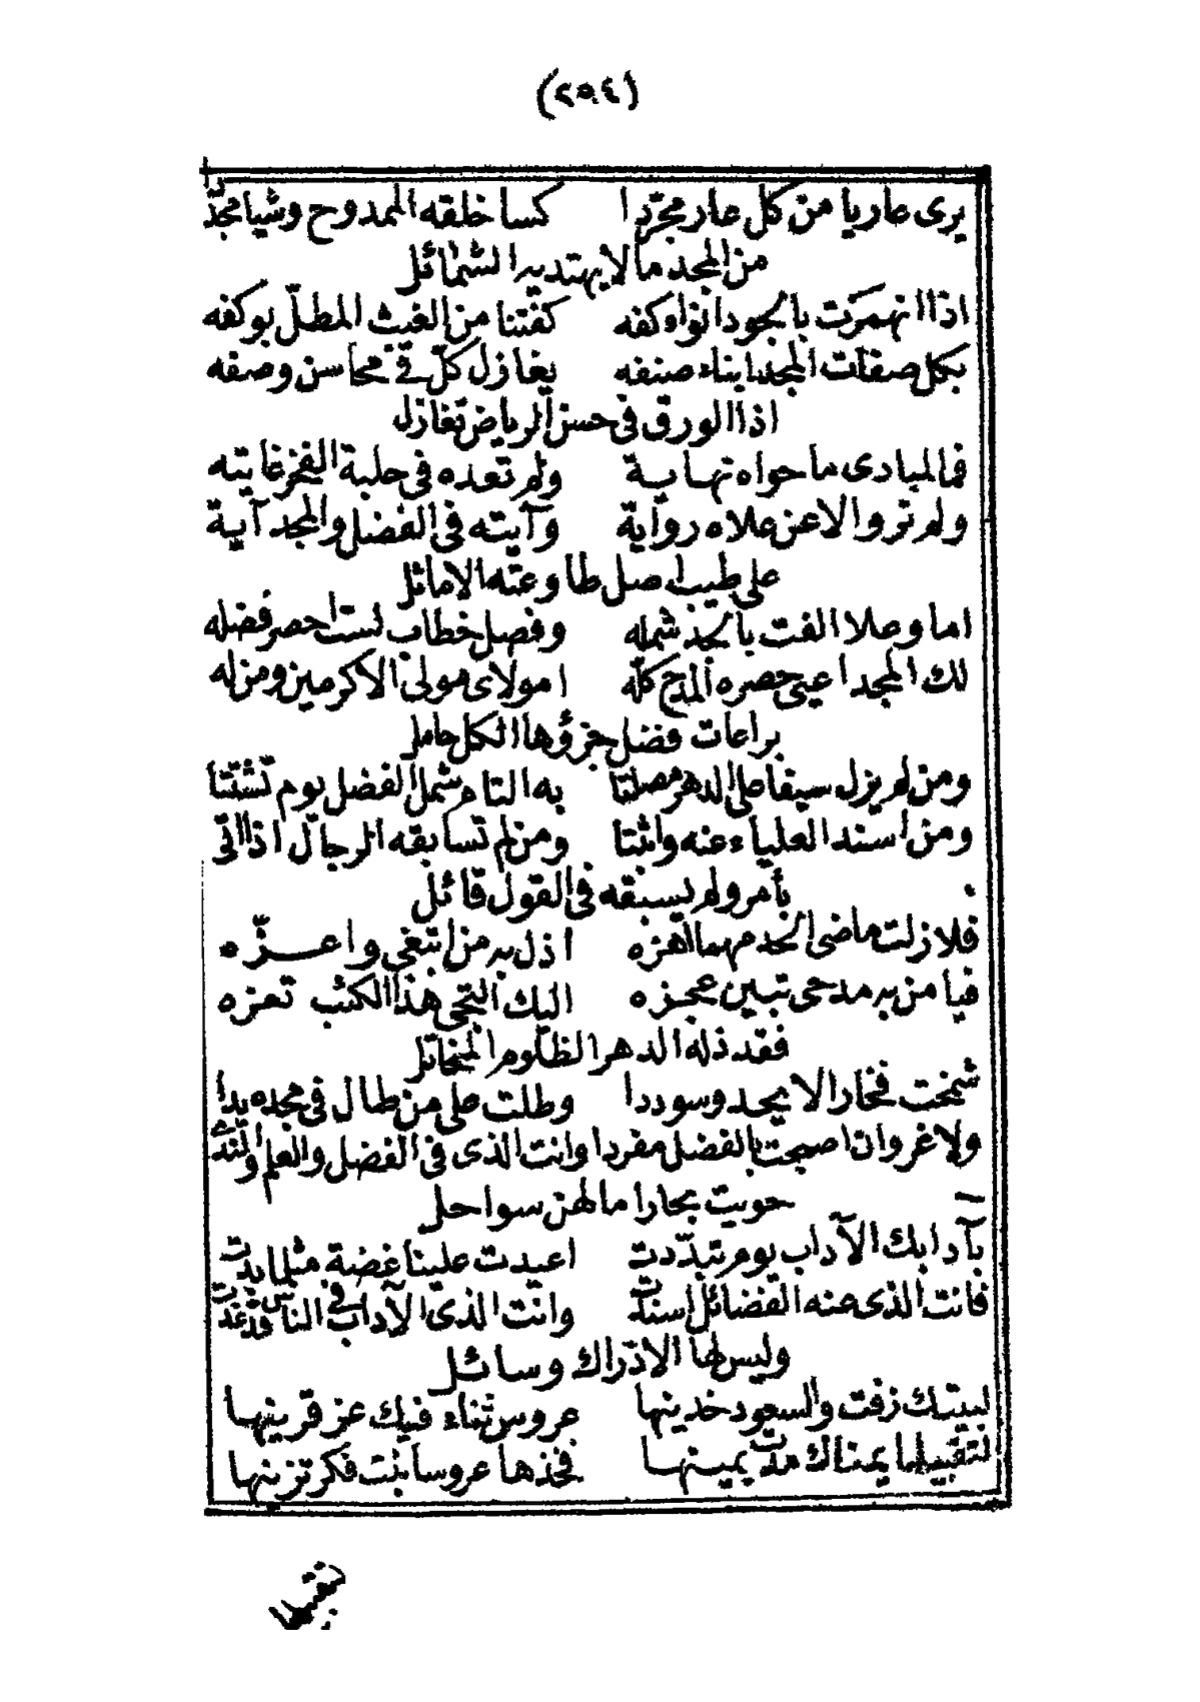 (٢٥٤)
يرى عاريا من كل عار مجرّدا كسا خلقه الممدوح وشيا مجدّ
من المجد ما لا يهتديه الشمائل
اذا انهمرت بالجود انواء كفه كفتنا من الغيث المطلّ بوكفه
بكل صفات المجد ابناء صنفه يغازل كلّ في محاسن وصفه
اذا الورق في حسن الرياض تغازل
فما لمبادى ما حواه نهاية ولم تعده في حلبة الفخر غايته
ولم ترو الا عن علاه رواية وآيته في الفضل والمجد آية
على طيب اصل طاوعته الاماثل
اما وعلا الفت بالحد شمله وفصل خطاب لست احصر فضله
لك المجد اعيى حصره المدح كلّه امولاى مولى الاكرمين ومن له
براعات فضل جزؤها الكل حامل
ومن لم يزل سيفا على الدهر مصلتا به التام شمل الفضل يوم تشتتا
ومن اسند العلياء عنه واثبتا ومن لم تسابقه الرجال اذا اتى
بأمر ولم يسبقه في القول قائل
فلا زلت ماضى الحد مهما اهزه اذل به من ابتغى واعزّه
فيا من به مدحى تبين عجزه اليك التجى هذا الكئب تعزه
فقد ذله الدهر الظلوم المخاتل
شمخت فخارا لا بمجد وسوددا وطلت على من طال في مجده يدا
ولا غروان اصبحت بالفضل مفردا وانت الذى في الفضل والعلم والندى
حويت بحارا ما لهن سواحل
بآدابك الآداب يوم تبدّدت اعيدت علينا غضة مثلما بدت
فانت الذى عنه الفضائل اسندت وانت الذى الآداب في الناس قد غدت
وليس لها الا ذراك وسائل
لبيتك زفت والسعود خدينها عروس ثناء فيك عز قرينها
لتقبيلها يمناك مدّت يمينها فخذها عروسا بنت فكر تزينها